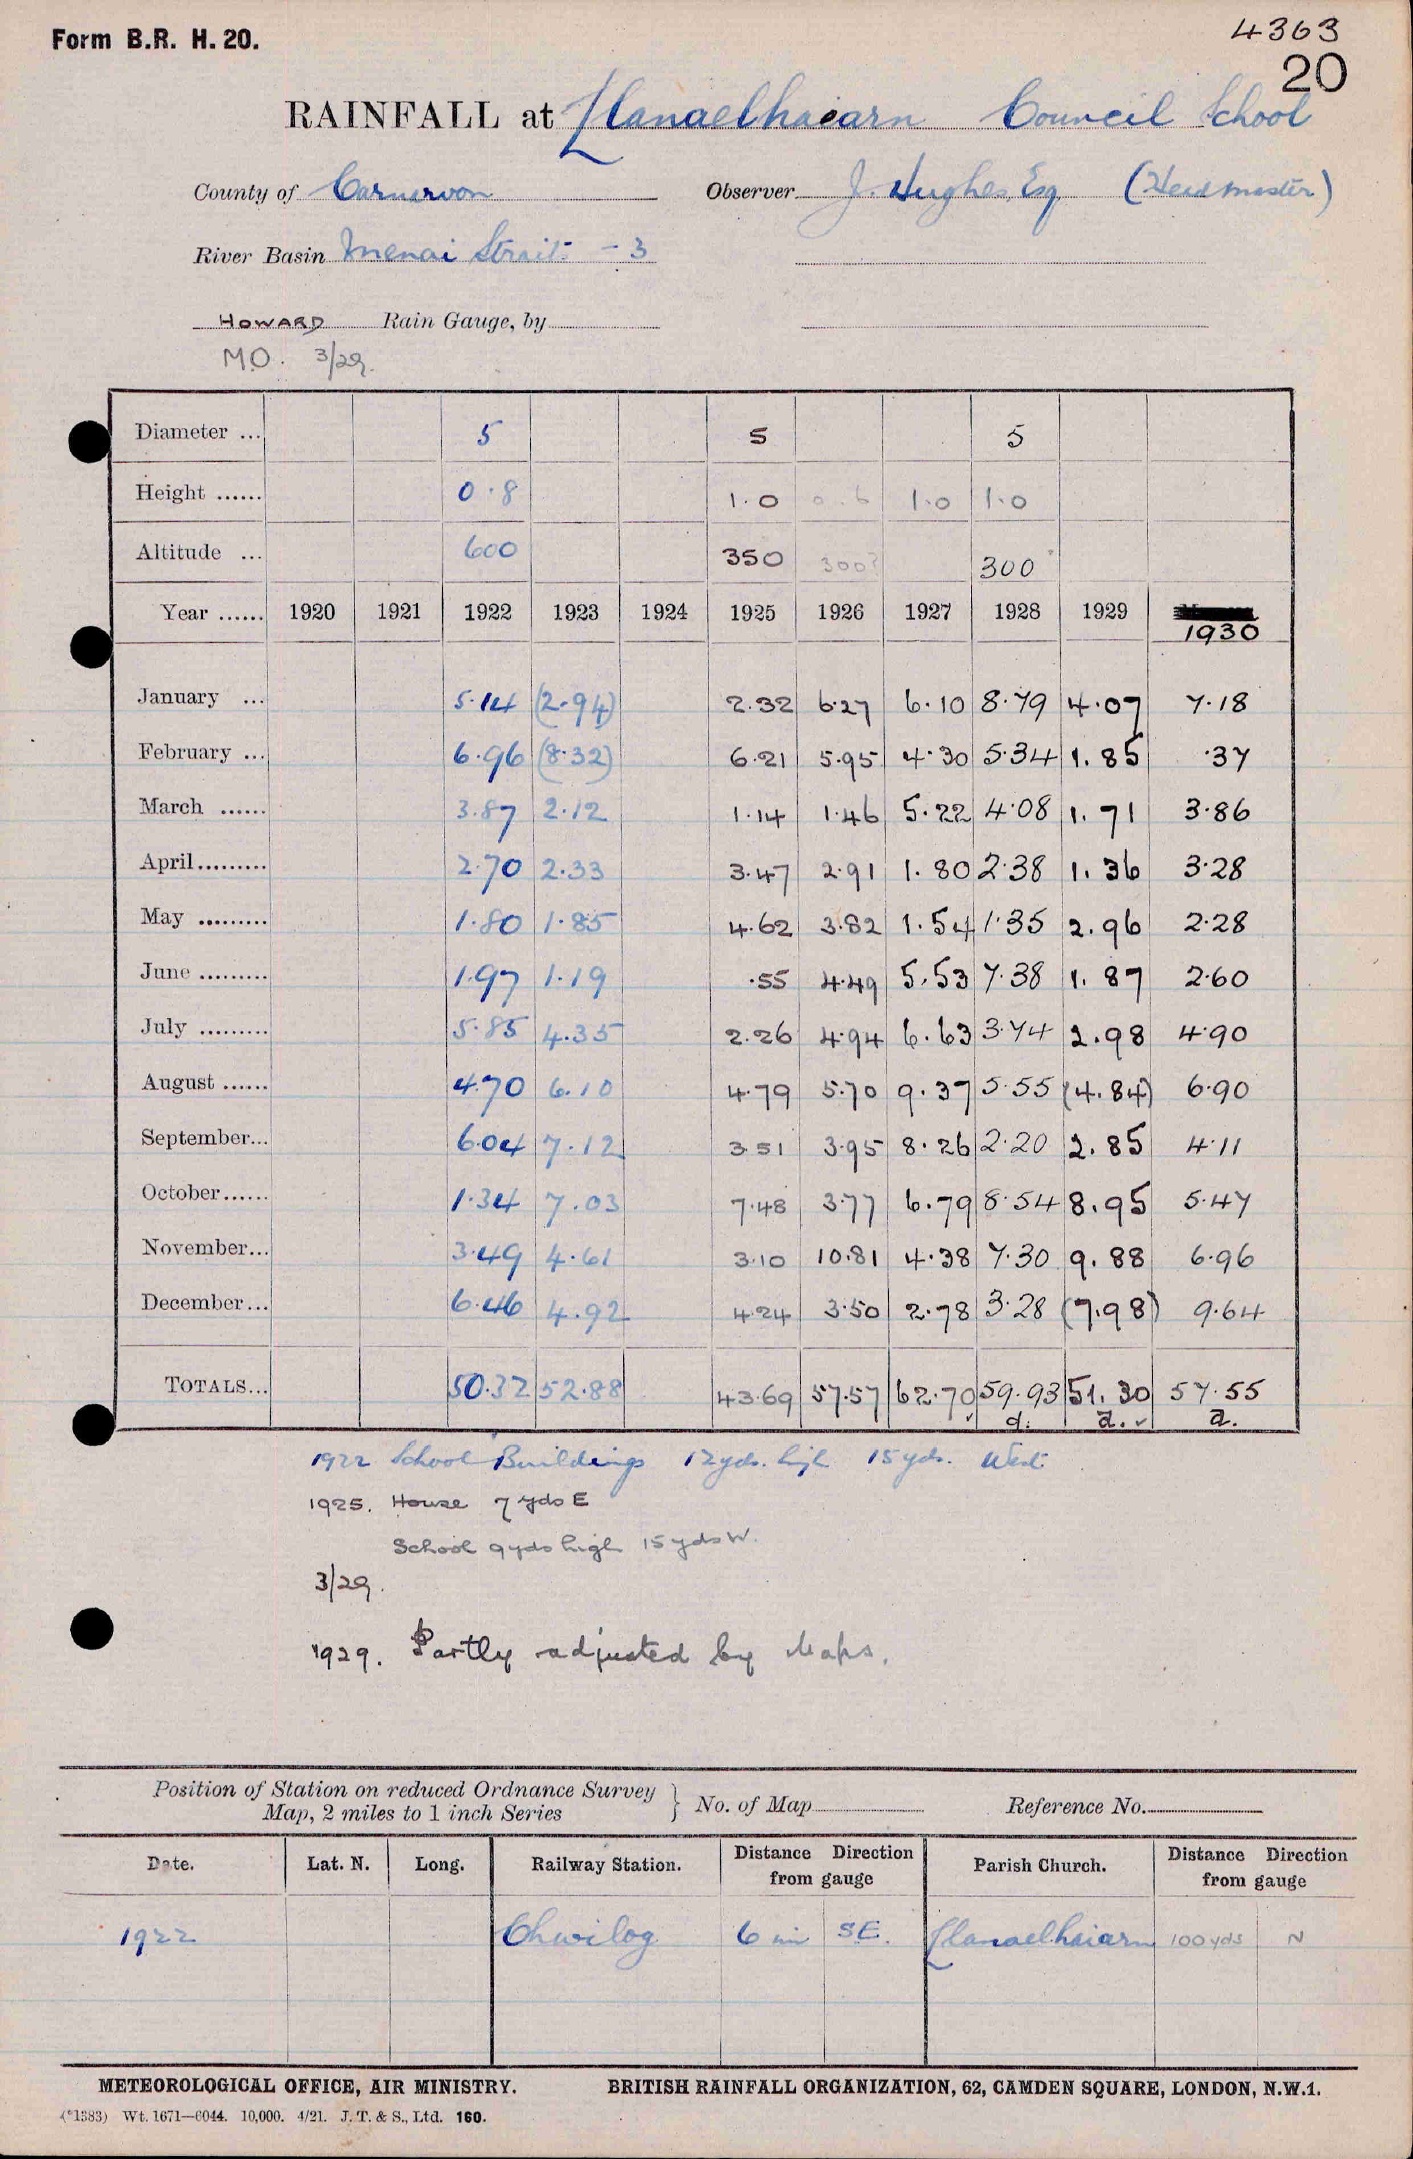 Form B.R. H. 20.
4363
20
RAINFALL at Llanaelhaiarn Council School
County of Carnarvon Observer J. Hughes, Esq (Headmaster)
River Basin Menai Strait - 3
HOWARD Rain Gauge, by
M.O. 3/29.
Diameter ... 5 5 5
Height ...... 0.8 1.0 0.6 1.0 1.0
Altitude ... 600 350 300? 300
Year ...... 1920 1921 1922 1923 1924 1925 1926 1927 1928 1929 1930
January ... 5.14 (2.94) 2.32 6.27 6.10 8.79 4.07 7.18
February ... 6.96 (8.32) 6.21 5.95 4.30 5.34 1.85 .37
March ...... 3.87 2.12 1.14 1.46 5.22 4.08 1.71 3.86
April......... 2.70 2.33 3.47 2.91 1.80 2.38 1.36 3.28
May ......... 1.80 1.85 4.62 3.82 1.54 1.35 2.96 2.28
June ......... 1.97 1.19 .55 4.49 5.53 7.38 1.87 2.60
July ......... 5.85 4.35 2.26 4.94 6.63 3.74 2.98 4.90
August ...... 4.70 6.10 4.79 5.70 9.37 5.55 (4.84) 6.90
September... 6.04 7.12 3.51 3.95 8.26 2.20 2.85 4.11
October...... 1.34 7.03 7.48 3.77 6.79 8.54 8.95 5.47
November... 3.49 4.61 3.10 10.81 4.38 7.30 9.88 6.96
December... 6.46 4.92 4.24 3.50 2.78 3.28 (7.98) 9.64
TOTALS... 50.32 52.88 43.69 57.57 62.70 59.93 51.30 57.55
d. a. a.
1922 School Buildings 12 yds. high 15 yds. West
1925. House 7 yds E
School 9 yds high 15 yds W.
3/29.
1929. Partly adjusted by Maps.
Position of Station on reduced Ordnance Survey
Map, 2 miles to 1 inch Series } No. of Map Reference No.
Date. Lat. N. Long. Railway Station. Distance Direction from gauge Parish Church. Distance Direction from gauge
1922 Chwilog 6 mi SE. Llanaelhaiarn 100 yds N
METEOROLOGICAL OFFICE, AIR MINISTRY. BRITISH RAINFALL ORGANIZATION, 62, CAMDEN SQUARE, LONDON, N.W.1.
(*1383) Wt. 1671—6044. 10,000. 4/21. J. T. & S., Ltd. 160.